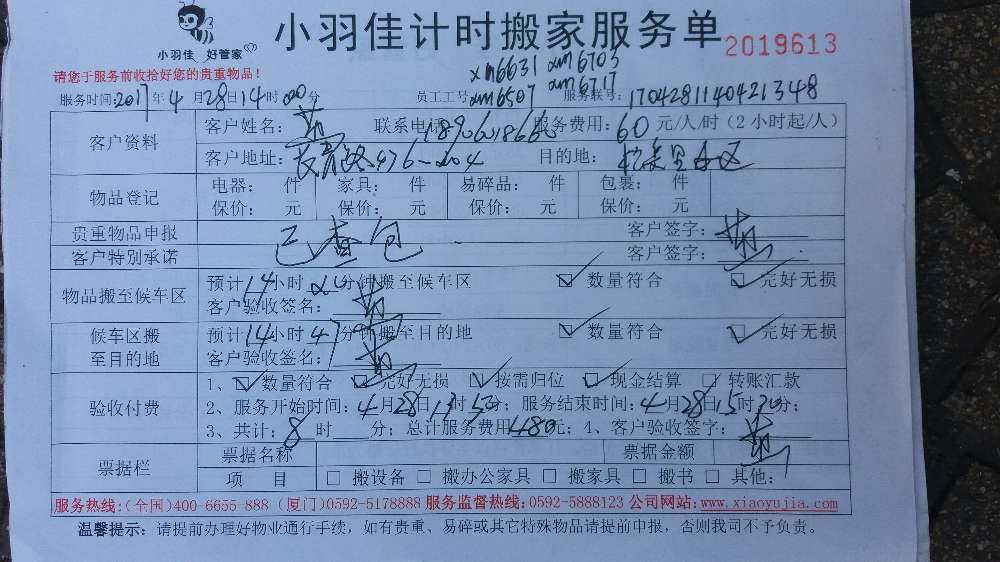 小羽佳 好管家
小羽佳计时搬家服务单 2019613
请您于服务前收拾好您的贵重物品！
xm6631 xm6703
服务时间:2017年4月28日14时00分 员工工号: xm6507 xm6717 服务联号: 1704281140421348
客户资料
客户姓名: 联系电话: 服务费用: 60元/人/时（2小时起/人）
客户地址: 长青路476-204 目的地:
物品登记
电器: 件 家具: 件 易碎品: 件 包裹: 件
保价: 元 保价: 元 保价: 元 保价: 元
贵重物品申报 已查包 客户签字:
客户特别承诺 客户签字:
物品搬至候车区
预计14小时20分钟搬至候车区 ☑数量符合 ☑完好无损
客户验收签名:
候车区搬至目的地
预计14小时47分钟搬至目的地 ☑数量符合 ☑完好无损
客户验收签名:
验收付费
1、☑数量符合 ☑完好无损 ☑按需归位 ☑现金结算 □转账汇款
2、服务开始时间:4月28日13时50分；服务结束时间:4月28日15时50分；
3、共计:8时 分；总计服务费用480元；4、客户验收签字:
票据栏
票据名称 票据金额
项 目 □搬设备 □搬办公家具 □搬家具 □搬书 □其他:
服务热线:(全国)400-6655-888 (厦门)0592-5178888 服务监督热线:0592-5888123 公司网站:www.xiaoyujia.com
温馨提示: 请提前办理好物业通行手续，如有贵重、易碎或其它特殊物品请提前申报，否则我司不予负责。